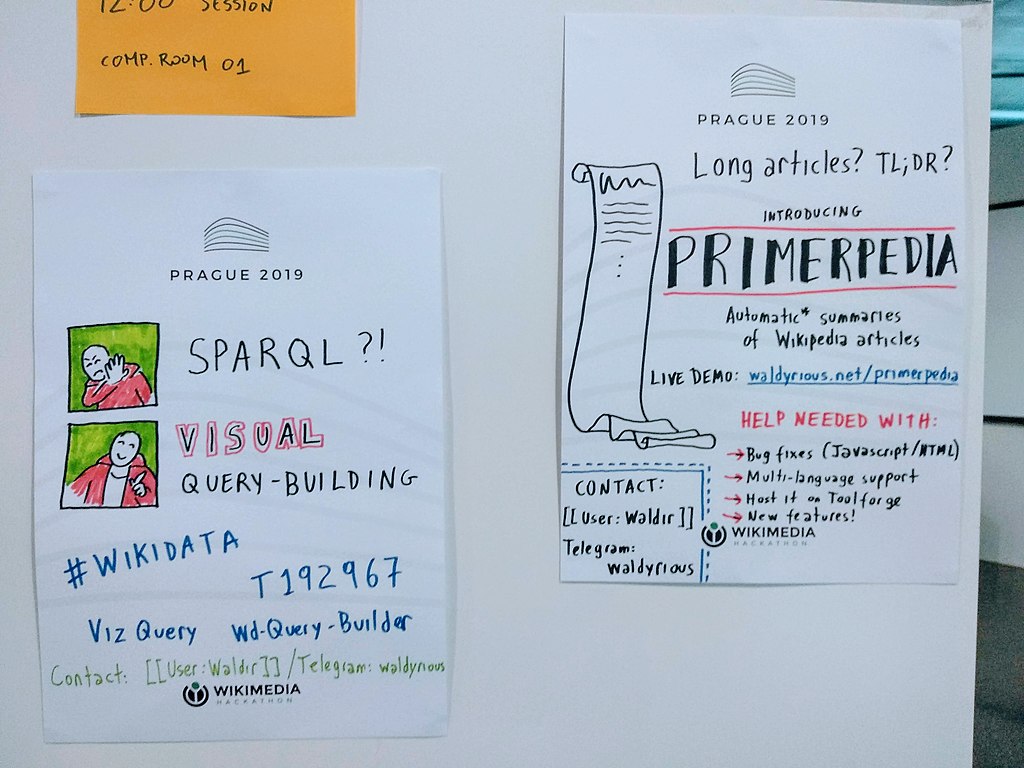 12:00 SESSION
COMP. ROOM 01
PRAGUE 2019
SPARQL ?!
VISUAL
QUERY-BUILDING
#WIKIDATA
T192967
Viz Query wd-Query-Builder
Contact: [[User:Waldir]] /Telegram: waldyrious
WIKIMEDIA
HACKATHON
PRAGUE 2019
Long articles? TL;DR?
INTRODUCING
PRIMERPEDIA
Automatic* summaries
of Wikipedia articles
LIVE DEMO: waldyrious.net/primerpedia
HELP NEEDED WITH:
→Bug fixes (Javascript/HTML)
→Multi-language support
→Host it on Toolforge
→New features!
CONTACT:
[[User: Waldir]]
Telegram:
waldyrious
WIKIMEDIA
HACKATHON